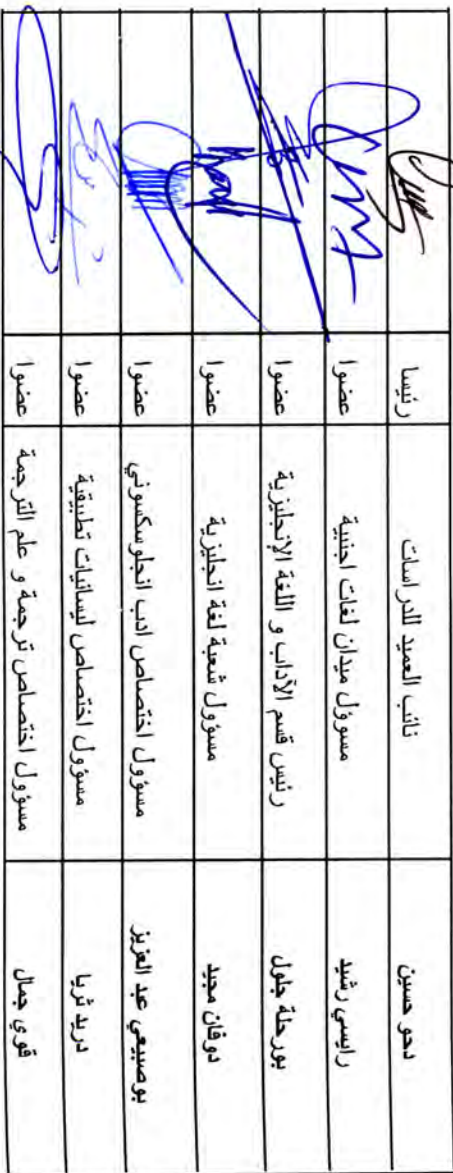 دحو حسين نائب العميد للدراسات رئيسا
رايسي رشيد مسؤول ميدان لغات اجنبية عضوا
بورحلة جلول رئيس قسم الآداب و اللغة الإنجليزية عضوا
دوفان مجيد مسؤول شعبة لغة انجليزية عضوا
بوصبيعي عبد العزيز مسؤول اختصاص ادب انجلوسكسوني عضوا
دريد ثريا مسؤول اختصاص ليسانيات تطبيقية عضوا
قوي جمال مسؤول اختصاص ترجمة و علم الترجمة عضوا